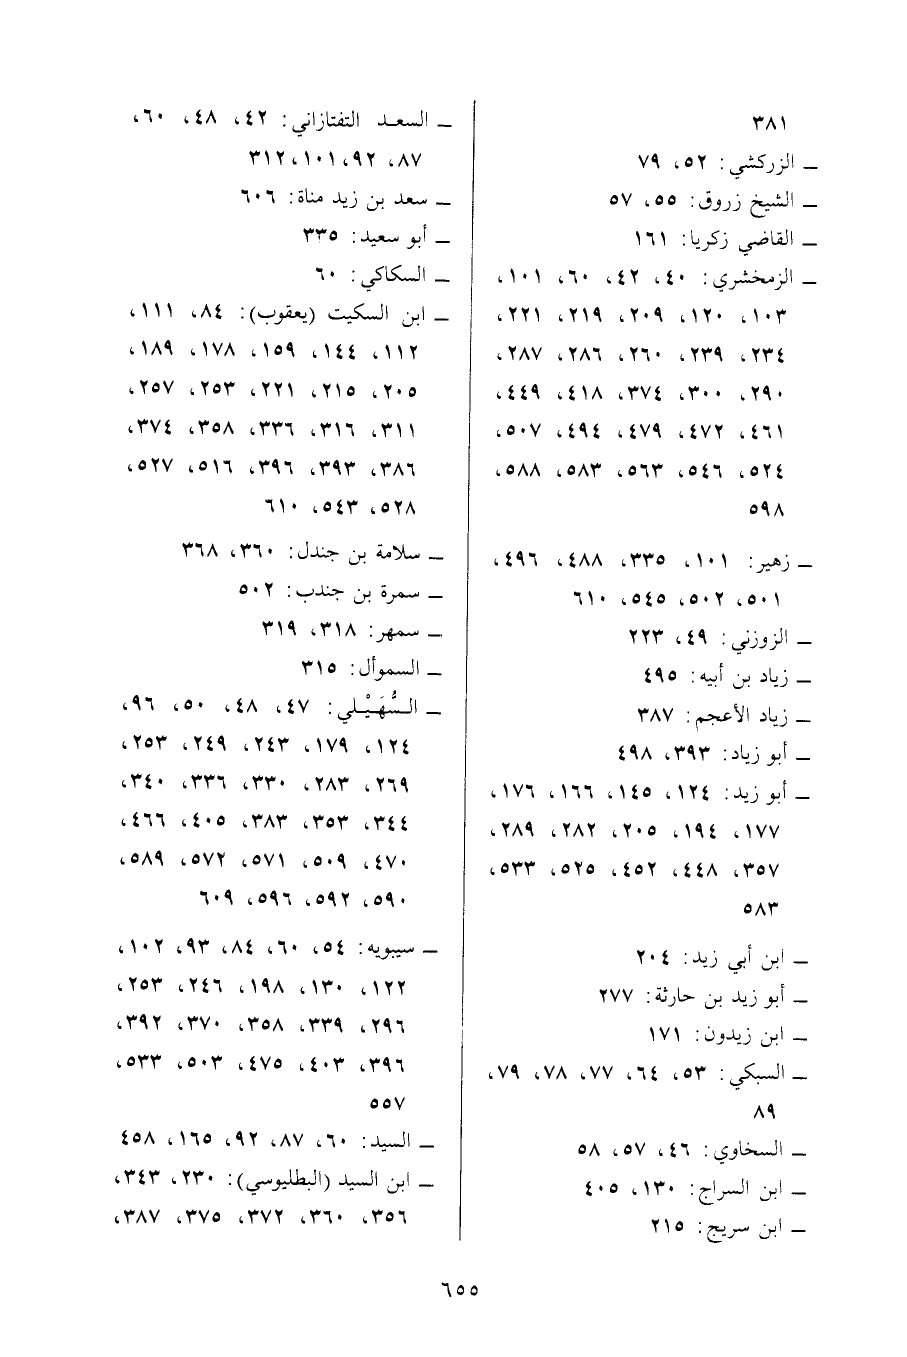 ٣٨١
ــ الزركشي: ٥٢، ٧٩
ــ الشيخ زروق: ٥٥، ٥٧
ــ القاضي زكريا: ١٦١
ــ الزمخشري: ٤٠، ٤٢، ٦٠، ١٠١،
١٠٣، ١٢٠، ٢٠٩، ٢١٩، ٢٢١،
٢٣٤، ٢٣٩، ٢٦٠، ٢٨٦، ٢٨٧،
٢٩٠، ٣٠٠، ٣٧٤، ٤١٨، ٤٤٩،
٤٦١، ٤٧٢، ٤٧٩، ٤٩٤، ٥٠٧،
٥٢٤، ٥٤٦، ٥٦٣، ٥٨٣، ٥٨٨،
٥٩٨
ــ زهير: ١٠١، ٣٣٥، ٤٨٨، ٤٩٦،
٥٠١، ٥٠٢، ٥٤٥، ٦١٠
ــ الزوزني: ٤٩، ٢٢٣
ــ زياد بن أبيه: ٤٩٥
ــ زياد الأعجم: ٣٨٧
ــ أبو زياد: ٣٩٣، ٤٩٨
ــ أبو زيد: ١٢٤، ١٤٥، ١٦٦، ١٧٦،
١٧٧، ١٩٤، ٢٠٥، ٢٨٢، ٢٨٩،
٣٥٧، ٤٤٨، ٤٥٢، ٥٢٥، ٥٣٣،
٥٨٣
ــ ابن أبي زيد: ٢٠٤
ــ أبو زيد بن حارثة: ٢٧٧
ــ ابن زيدون: ١٧١
ــ السبكي: ٥٣، ٦٤، ٧٧، ٧٨، ٧٩،
٨٩
ــ السخاوي: ٤٦، ٥٧، ٥٨
ــ ابن السراج: ١٣٠، ٤٠٥
ــ ابن سريج: ٢١٥
ــ السعد التفتازاني: ٤٢، ٤٨، ٦٠،
٨٧، ٩٢، ١٠١، ٣١٢
ــ سعد بن زيد مناة: ٦٠٦
ــ أبو سعيد: ٣٣٥
ــ السكاكي: ٦٠
ــ ابن السكيت (يعقوب): ٨٤، ١١١،
١١٢، ١٤٤، ١٥٩، ١٧٨، ١٨٩،
٢٠٥، ٢١٥، ٢٢١، ٢٥٣، ٢٥٧،
٣١١، ٣١٦، ٣٣٦، ٣٥٨، ٣٧٤،
٣٨٦، ٣٩٣، ٣٩٦، ٥١٦، ٥٢٧،
٥٢٨، ٥٤٣، ٦١٠
ــ سلامة بن جندل: ٣٦٠، ٣٦٨
ــ سمرة بن جندب: ٥٠٢
ــ سمهر: ٣١٨، ٣١٩
ــ السموأل: ٣١٥
ــ السُّهَيْلي: ٤٧، ٤٨، ٥٠، ٩٦،
١٢٤، ١٧٩، ٢٤٣، ٢٤٩، ٢٥٣،
٢٦٩، ٢٨٣، ٣٣٠، ٣٣٦، ٣٤٠،
٣٤٤، ٣٥٣، ٣٨٣، ٤٠٥، ٤٦٦،
٤٧٠، ٥٠٩، ٥٧١، ٥٧٢، ٥٨٩،
٥٩٠، ٥٩٢، ٥٩٦، ٦٠٩
ــ سيبويه: ٥٤، ٦٠، ٨٤، ٩٣، ١٠٢،
١٢٢، ١٣٠، ١٩٨، ٢٤٦، ٢٥٣،
٢٩٦، ٣٣٩، ٣٥٨، ٣٧٠، ٣٩٢،
٣٩٦، ٤٠٣، ٤٧٥، ٥٠٣، ٥٣٣،
٥٥٧
ــ السيد: ٦٠، ٨٧، ٩٢، ١٦٥، ٤٥٨
ــ ابن السيد (البطليوسي): ٢٣٠، ٣٤٣،
٣٥٦، ٣٦٠، ٣٧٢، ٣٧٥، ٣٨٧،
٦٥٥